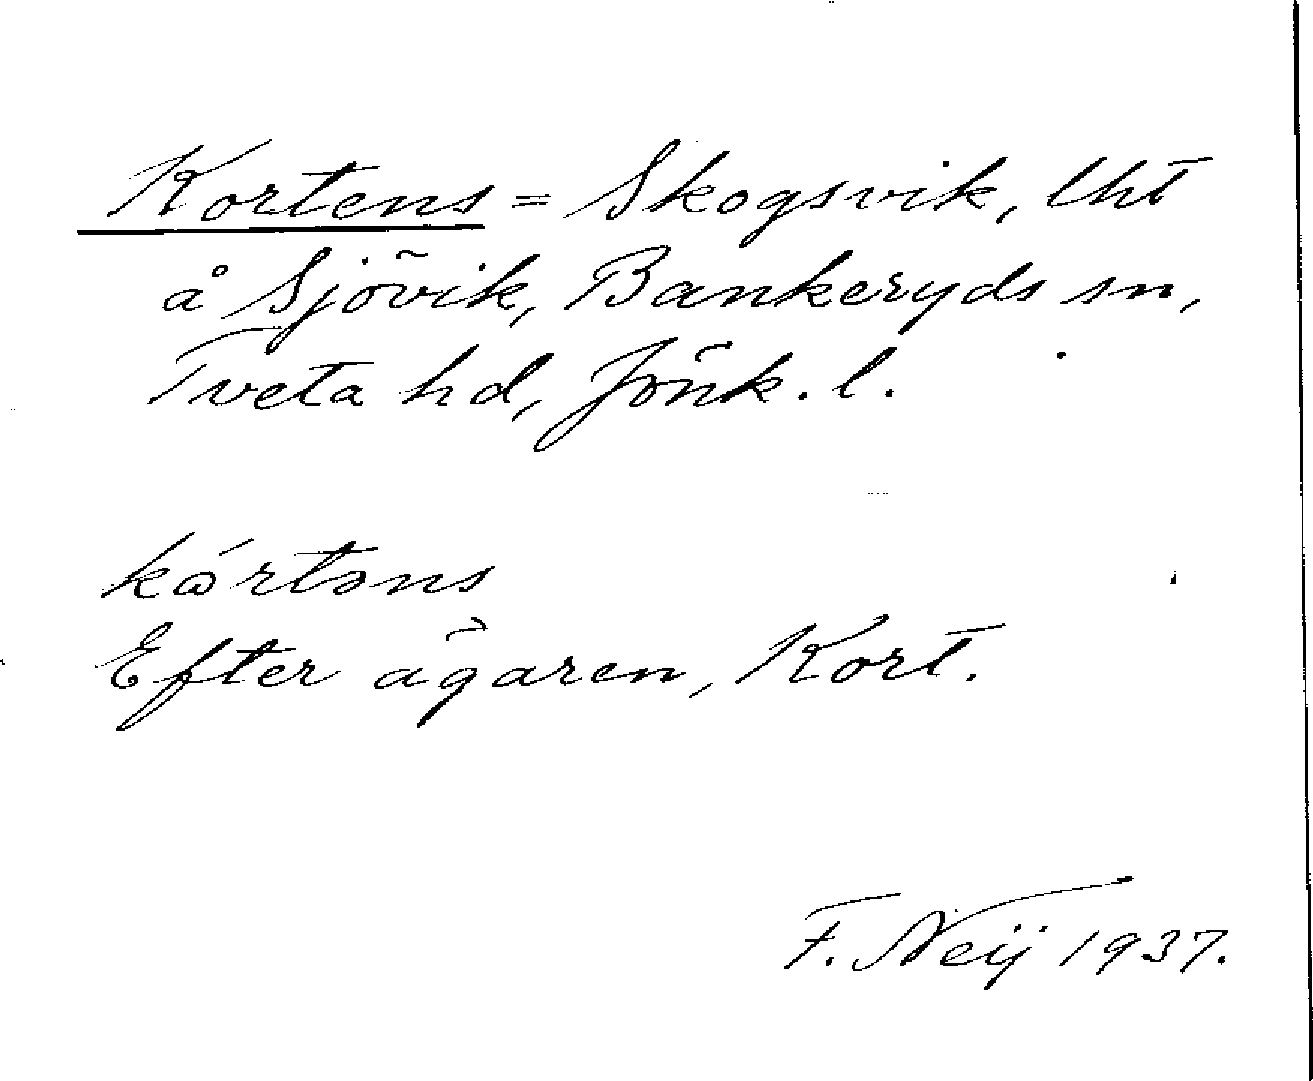 Kortens = Skogsvik, lht
å Sjövik, Bankeryds sn,
Tveta hd, Jönk. l.
kɷ́rtəns
Efter ägaren, Kort.
F. Neij 1937.